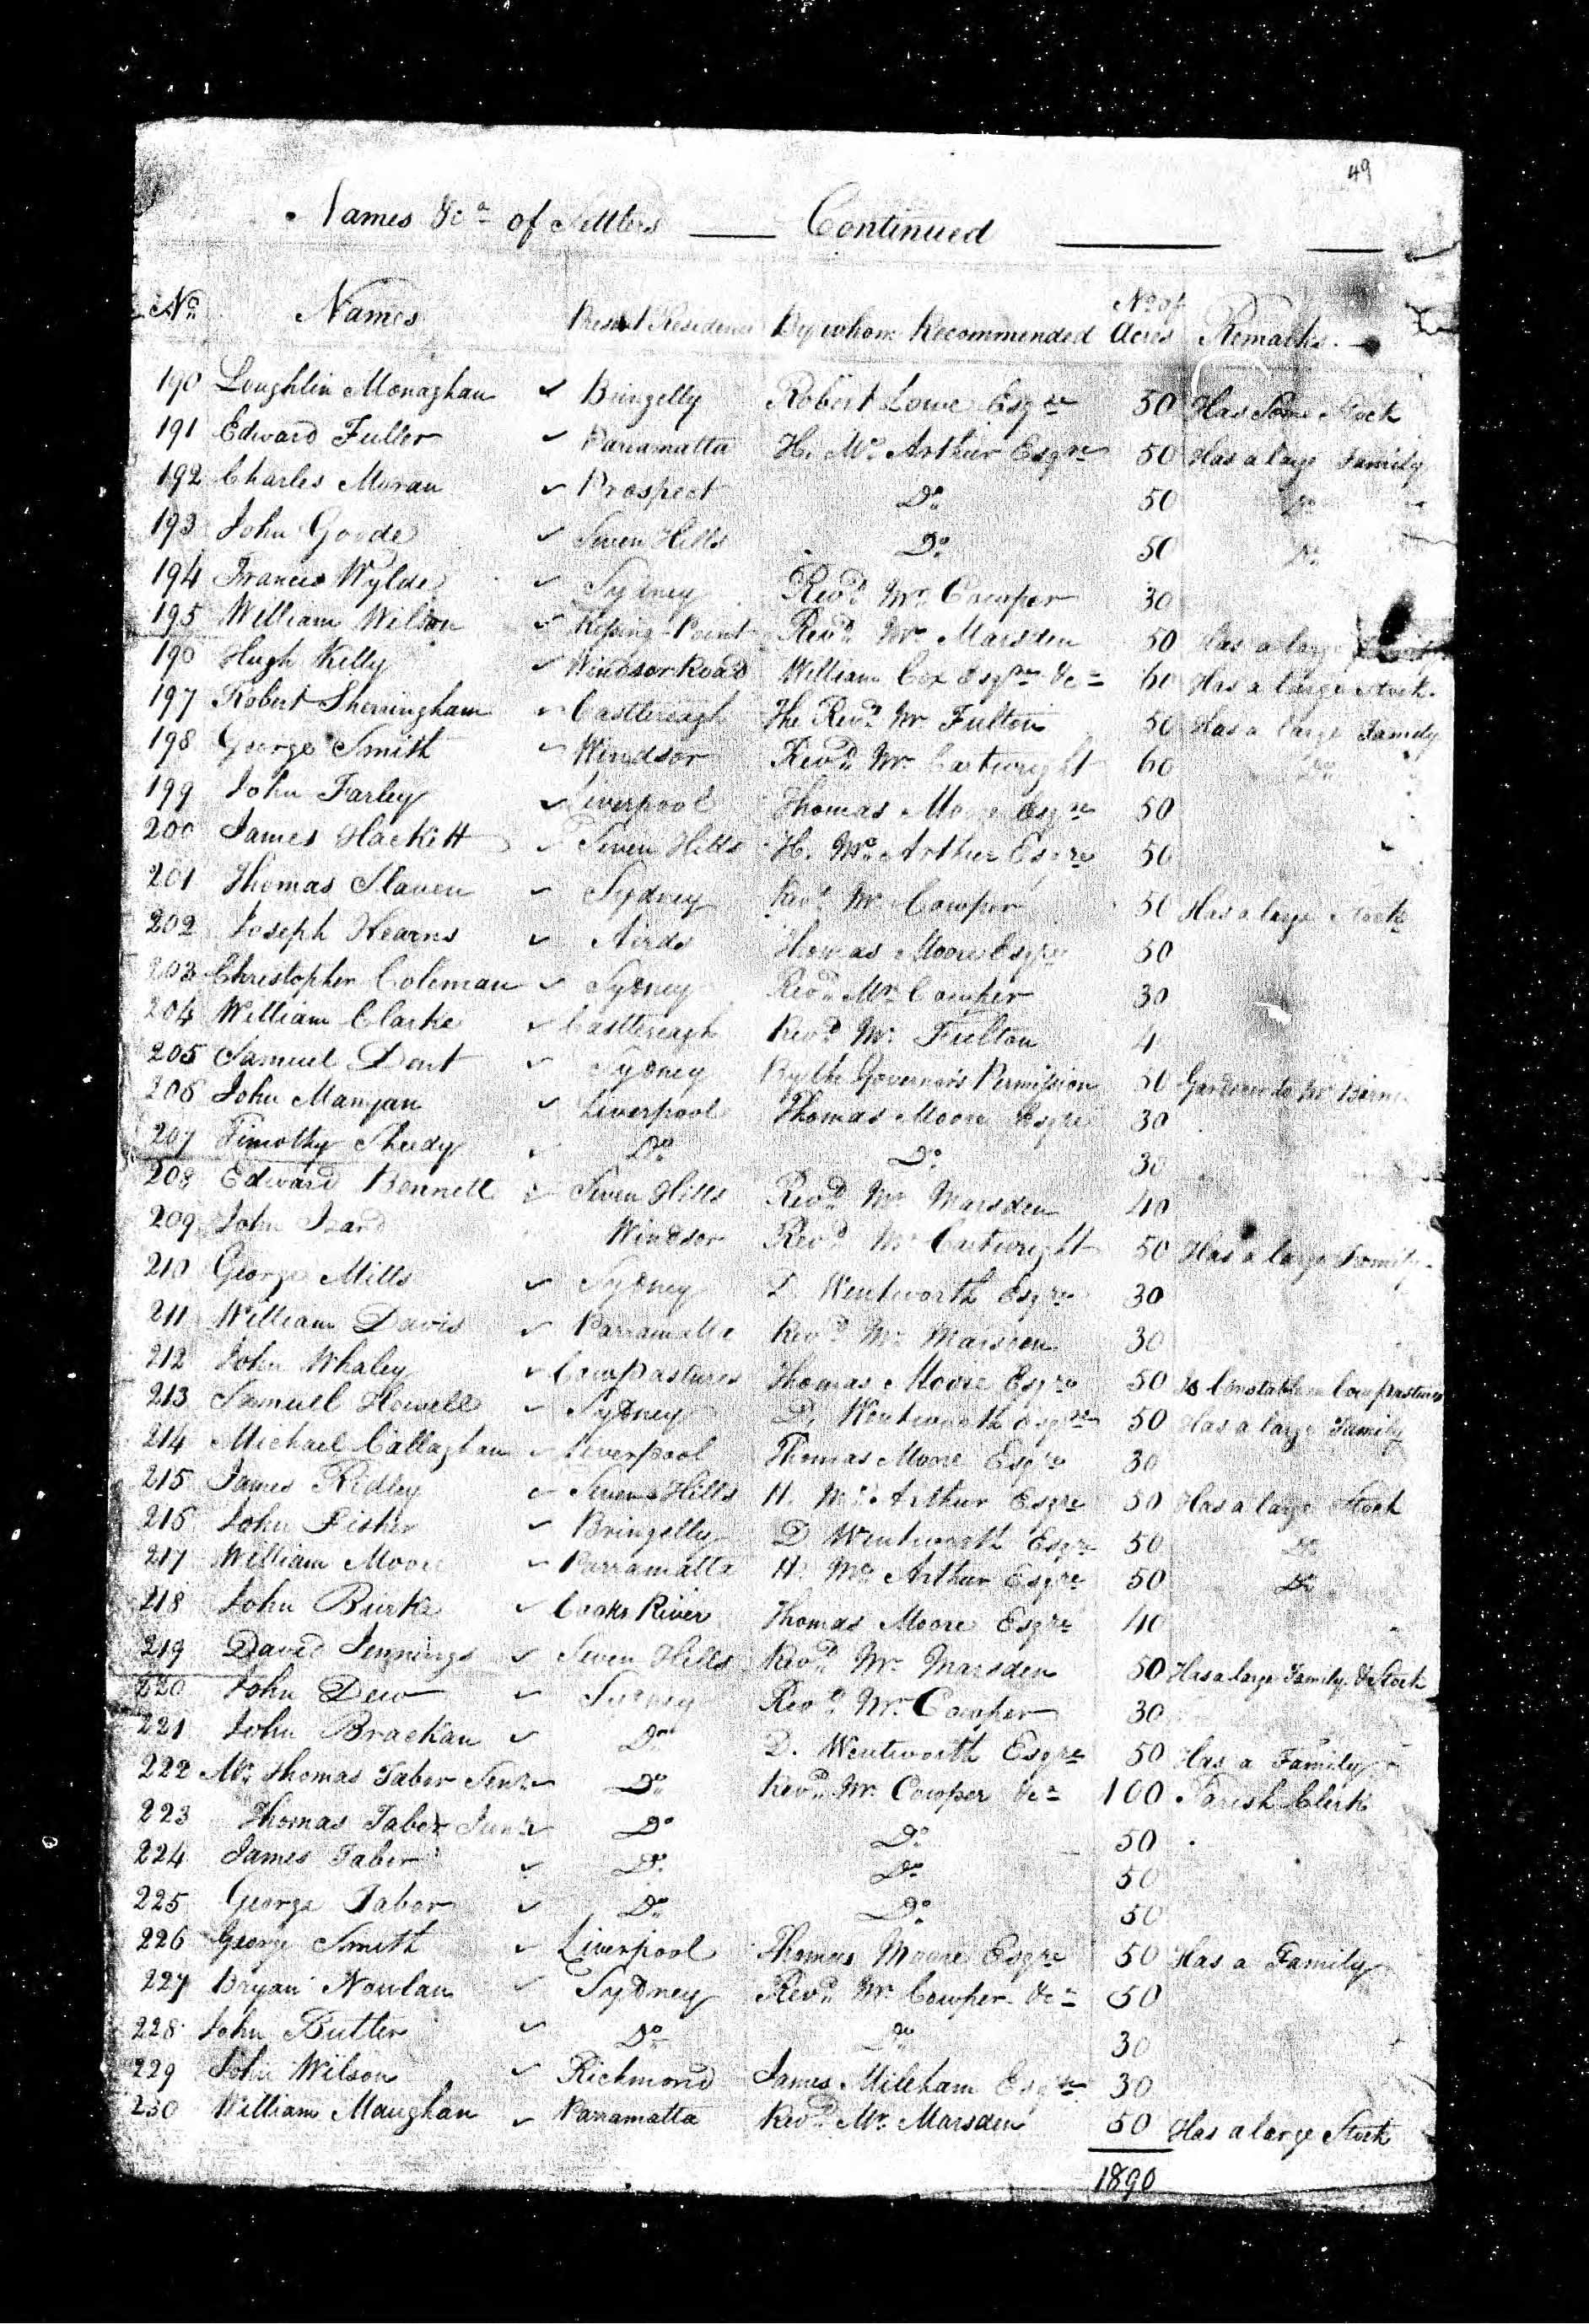 49
Names &ca of Settlers — Continued —
No. Names Present Residence By whom Recommended No. of Acres Remarks.
190 Loughlin Monaghan ✓ Bringelly Robert Lowe Esqre 50 Has Some Stock
191 Edward Fuller ✓ Parramatta H. Mc.Arthur Esqre 50 Has a large Family
192 Charles Moran ✓ Prospect Do. 50 Do.
193 John Goode ✓ Seven Hills Do. 50 Do.
194 Francis Wylde ✓ Sydney Revd. Mr. Cowper 30
195 William Wilson ✓ Kissing-Point Revd. Mr. Marsden 50 Has a large
196 Hugh Kelly ✓ Windsor Road William Cox Esqre &c 60 Has a large Stock.
197 Robert Sherringham ✓ Castlereagh The Revd. Mr. Fulton 50 Has a large Family
198 George Smith ✓ Windsor Revd. Mr. Cartwright 60 Do.
199 John Farley ✓ Liverpool Thomas Moore Esqre 50
200 James Hackett ✓ Seven Hills H. Mc.Arthur Esqre 50
201 Thomas Slaven ✓ Sydney Revd. Mr. Cowper 50 Has a large Stock
202 Joseph Kearns ✓ Airds Thomas Moore Esqre 50
203 Christopher Coleman ✓ Sydney Revd. Mr. Cowper 30
204 William Clarke ✓ Castlereagh Revd. Mr. Fulton 4
205 Samuel Dent ✓ Sydney By the Governor's Permission 50 Gardener to Mr
206 John Mangan ✓ Liverpool Thomas Moore Esqre 30
207 Timothy Sheedy ✓ Do. Do. 30
208 Edward Bennell ✓ Seven Hills Revd. Mr. Marsden 40
209 John Izard Windsor Revd. Mr. Cartwright 50 Has a large Family.
210 George Mills ✓ Sydney D. Wentworth Esqre 30
211 William Davis ✓ Parramatta Revd. Mr. Marsden 30
212 John Whaley ✓ Cowpastures Thomas Moore Esqre 50 Is Constable in Cowpastures
213 Samuel Howell ✓ Sydney D. Wentworth Esqre 50 Has a large Family
214 Michael Callaghan ✓ Liverpool Thomas Moore Esqre 30
215 James Ridley ✓ Seven Hills H. Mc.Arthur Esqre 50 Has a large Stock
216 John Fisher ✓ Bringelly D Wentworth Esqre 50 Do.
217 William Moore ✓ Parramatta H. Mc.Arthur Esqre 50 Do.
218 John Burke ✓ Cooks River Thomas Moore Esqre 40
219 David Jennings ✓ Seven Hills Revd. Mr. Marsden 50 Has a large Family & Stock
220 John Dew ✓ Sydney Revd. Mr. Cowper 30
221 John Brackan ✓ Do. D. Wentworth Esqre 50 Has a Family
222 Mr. Thomas Taber Senr ✓ Do. Revd. Mr. Cowper &c 100 Parish Clerk
223 Thomas Taber Junr ✓ Do Do. 50
224 James Taber ✓ Do. Do. 50
225 George Taber ✓ Do. Do. 50
226 George Smith ✓ Liverpool Thomas Moore Esqre 50 Has a Family
227 Bryan Nowlan ✓ Sydney Revd. Mr. Cowper &c 50
228 John Butler ✓ Do. Do. 30
229 John Wilson ✓ Richmond James Mileham Esqre 30
230 William Maughan ✓ Parramatta Revd. Mr. Marsden 50 Has a large Stock
1890